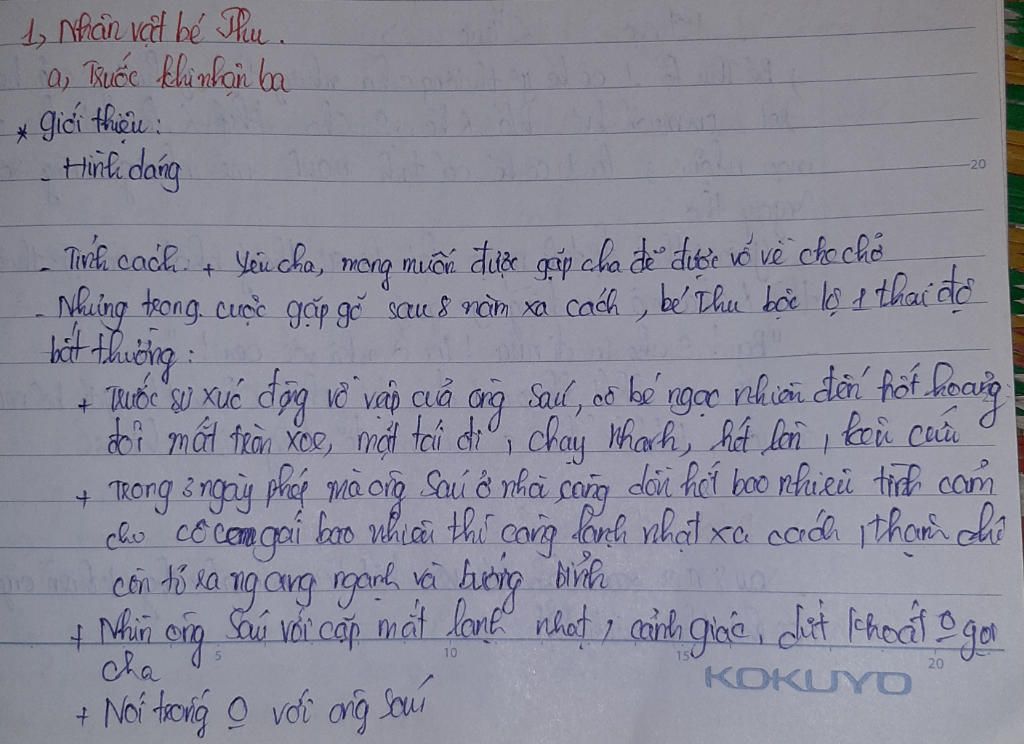 1, Nhân vật bé Thu.
a, Trước khi nhận ba
* Giới thiệu:
- Hình dáng
20
- Tính cách + yêu cha, mong muốn được gặp cha để được vỗ về che chở
- Nhưng trong cuộc gặp gỡ sau 8 năm xa cách, bé Thu bộc lộ 1 thái độ
bất thường:
+ Trước sự xúc động vồ vập của ông Sáu, cô bé ngạc nhiên đến hốt hoảng:
đôi mắt tròn xoe, mặt tái đi, chạy nhanh, hét lên, kêu cứu
+ Trong 3 ngày phép mà ông Sáu ở nhà càng dồn hết bao nhiêu tình cảm
cho cô con gái bao nhiêu thì càng lạnh nhạt xa cách, thậm chí
còn tỏ ra ngang ngạnh và bướng bỉnh
+ Nhìn ông Sáu với cặp mắt lạnh nhạt, cảnh giác, dứt khoát o gọi
cha
5 10 15 20
KOKUYO
+ Nói trống o với ông Sáu